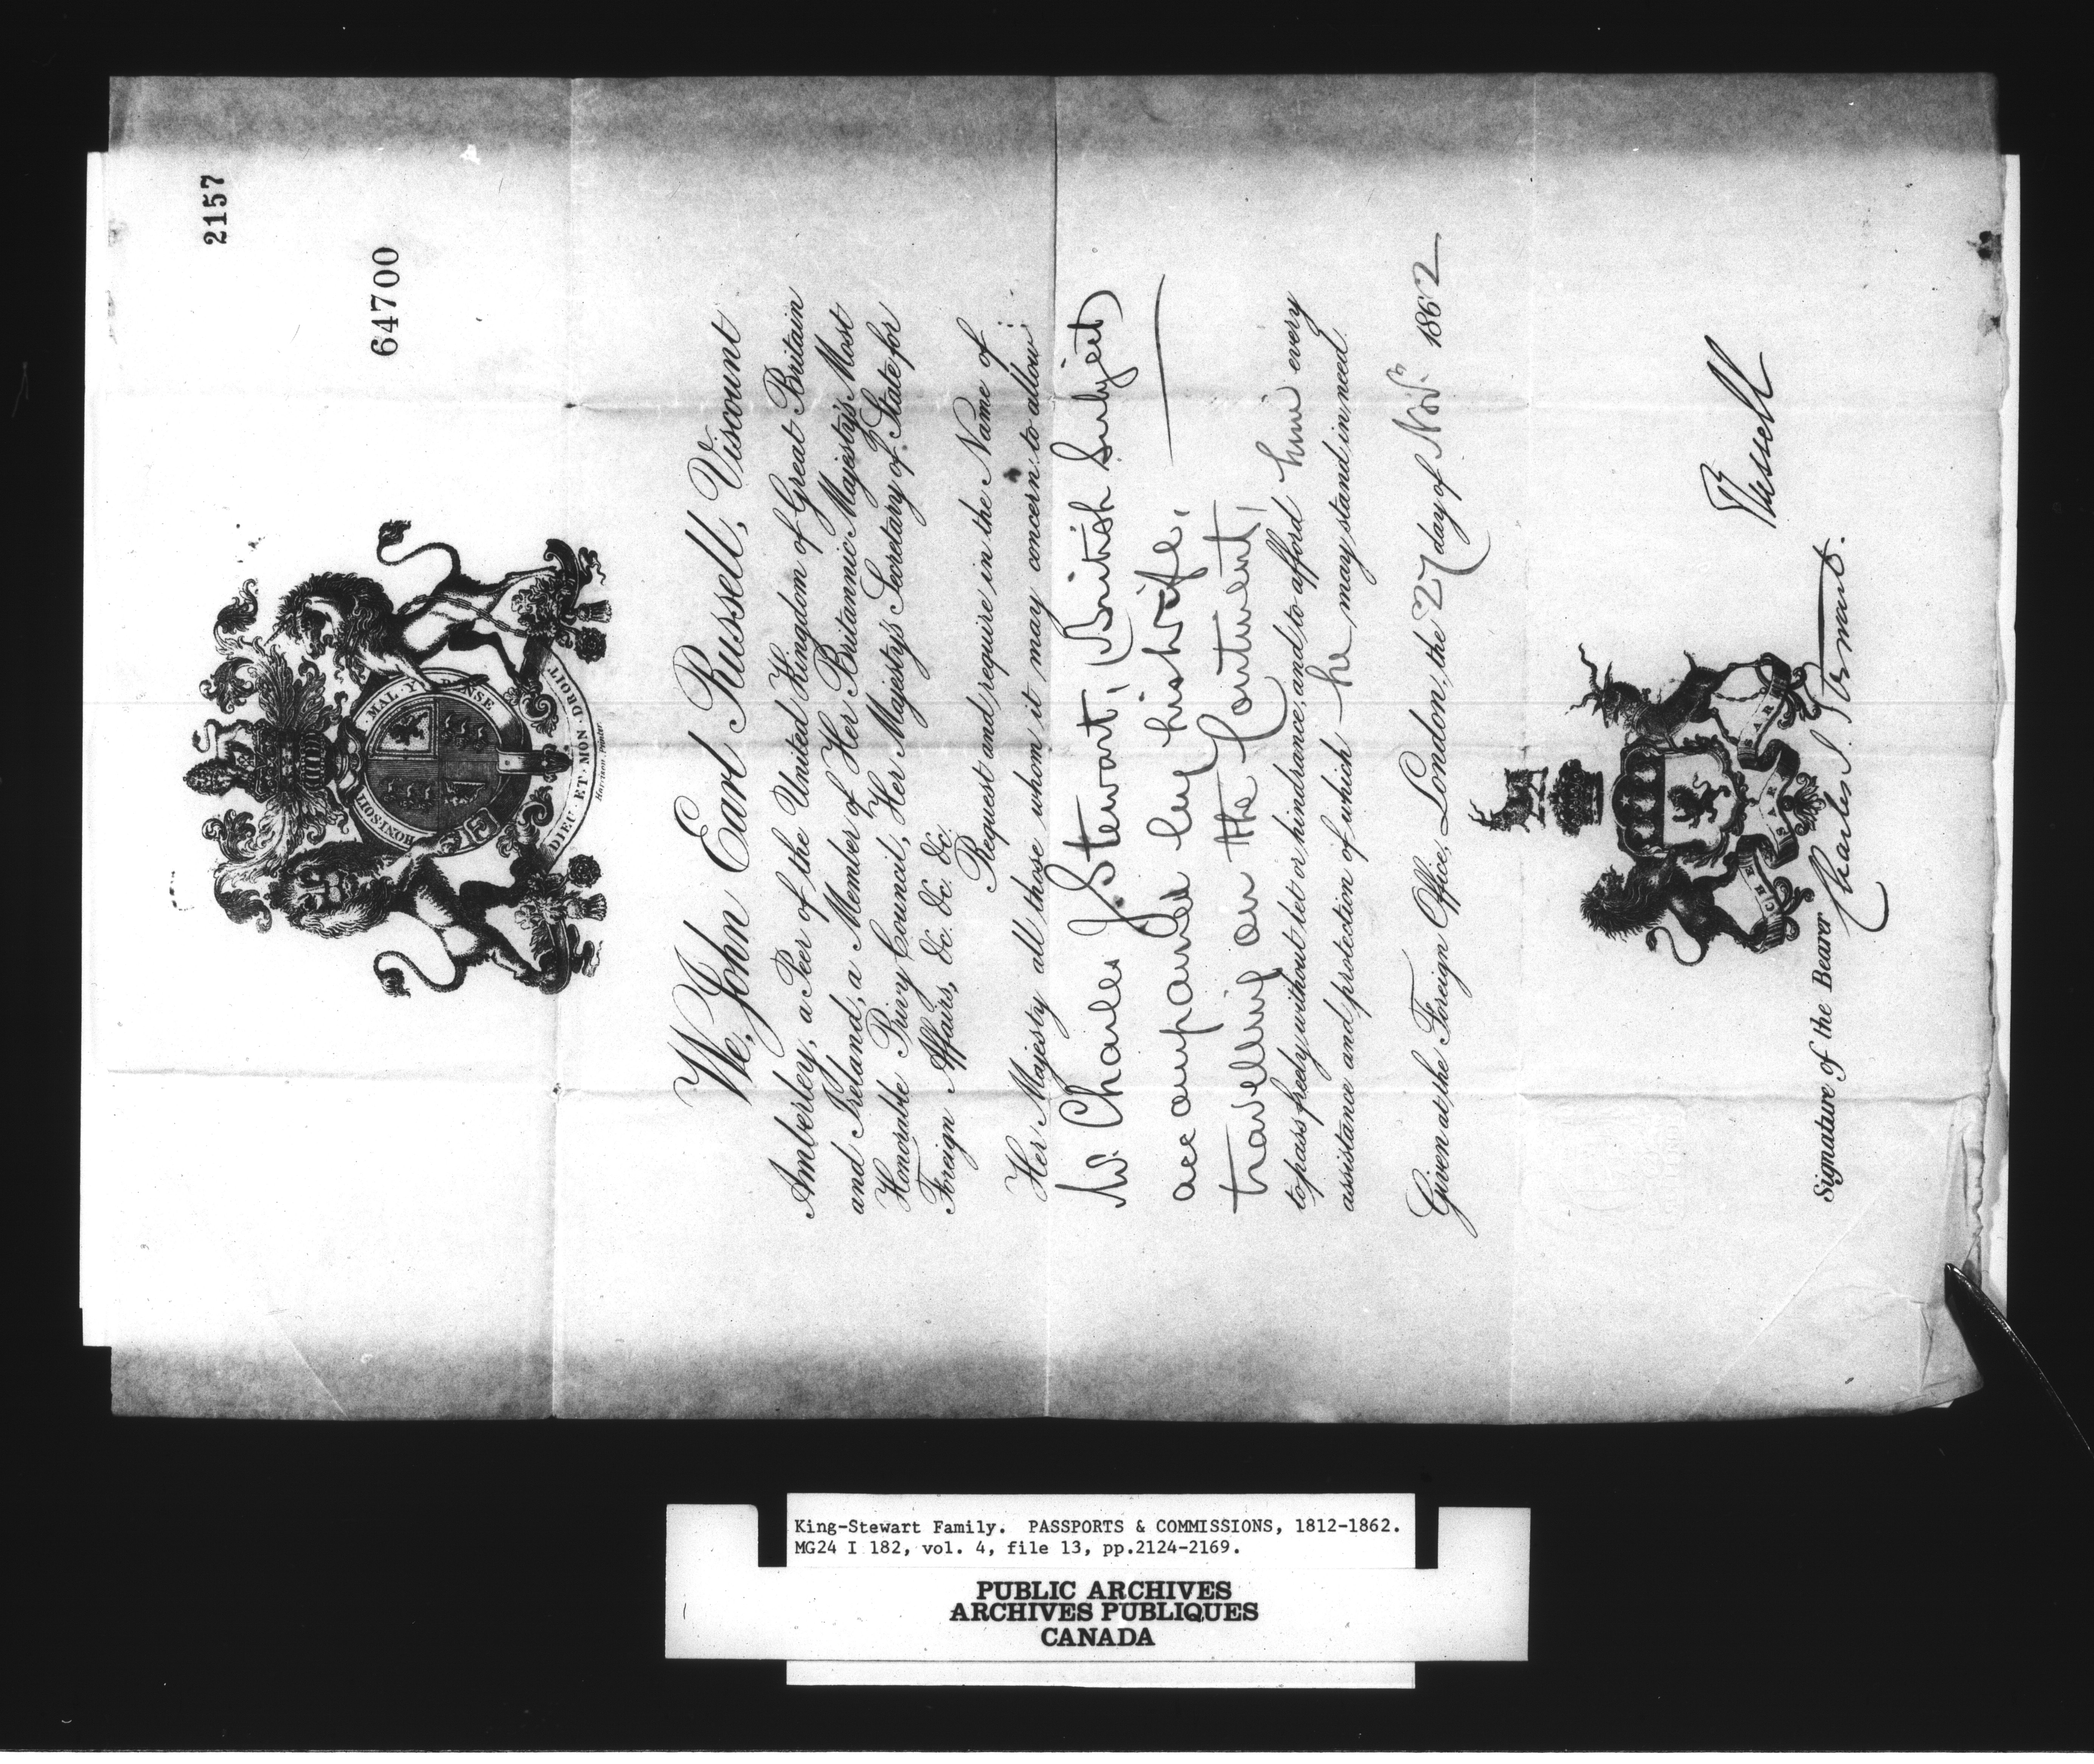 2157
64700
HONI·SOIT·
MAL·Y
NSE
DIEU·ET·MON·DROIT
Harrison, printer
We, John Earl Russell, Viscount
Amberley, a Peer of the United Kingdom of Great Britain
and Ireland, a Member of Her Britannic Majesty's Most
Honorable Privy Council, Her Majesty's Secretary of State for
Foreign Affairs, &c. &c. &c.
Request and require in the Name of
Her Majesty all those whom it may concern to allow
Mr. Charles J. Stewart, (British Subject)
accompanied by his wife,
travelling on the Continent,
to pass freely without let or hindrance, and to afford him every
assistance and protection of which he may stand in need.
Given at the Foreign Office, London, the 27 day of Novr. 1862
CHE SARA SARA
Russell
Signature of the Bearer Charles J. Stewart.
King-Stewart Family. PASSPORTS & COMMISSIONS, 1812-1862.
MG24 I 182, vol. 4, file 13, pp.2124-2169.
PUBLIC ARCHIVES
ARCHIVES PUBLIQUES
CANADA